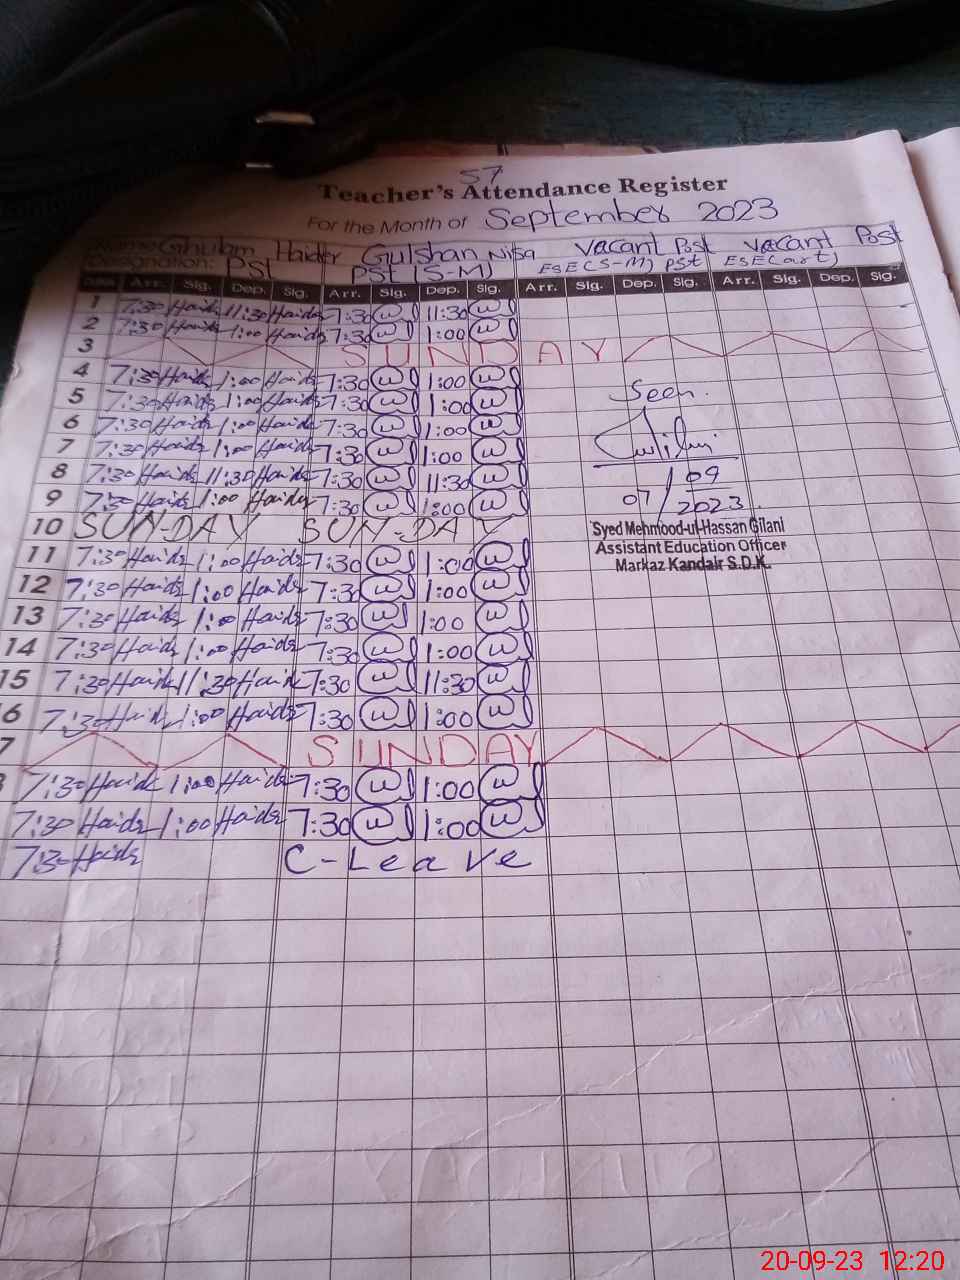 57
Teacher's Attendance Register
For the Month of September 2023
Name Ghulam Haider Gulshan Nisa Vacant Post Vacant Post
Designation: PST PST (S-M) ESE(S-M) PST ESE(art)
Date Arr. Sig. Dep. Sig. Arr. Sig. Dep. Sig. Arr. Sig. Dep. Sig. Arr. Sig. Dep. Sig.
1 7:30 Haider 11:30 Haider 7:30 11:30
2 7:30 Haider 1:00 Haider 7:30 1:00
3 SUNDAY
4 7:30 Haider 1:00 Haider 7:30 1:00
5 7:30 Haider 1:00 Haider 7:30 1:00
Seen.
6 7:30 Haider 1:00 Haider 7:30 1:00
7 7:30 Haider 1:00 Haider 7:30 1:00
8 7:30 Haider 11:30 Haider 7:30 11:30
9 7:30 Haider 1:00 Haider 7:30 1:00
07/09/2023
10 SUN-DAY SUN-DAY
Syed Mehmood-ul-Hassan Gilani
Assistant Education Officer
Markaz Kandair S.D.K.
11 7:30 Haider 1:00 Haider 7:30 1:00
12 7:30 Haider 1:00 Haider 7:30 1:00
13 7:30 Haider 1:00 Haider 7:30 1:00
14 7:30 Haider 1:00 Haider 7:30 1:00
15 7:30 Haider 11:30 Haider 7:30 11:30
6 7:30 Haider 1:00 Haider 7:30 1:00
7 SUNDAY
7:30 Haider 1:00 Haider 7:30 1:00
7:30 Haider 1:00 Haider 7:30 1:00
7:30 Haider C-Leave
20-09-23 12:20